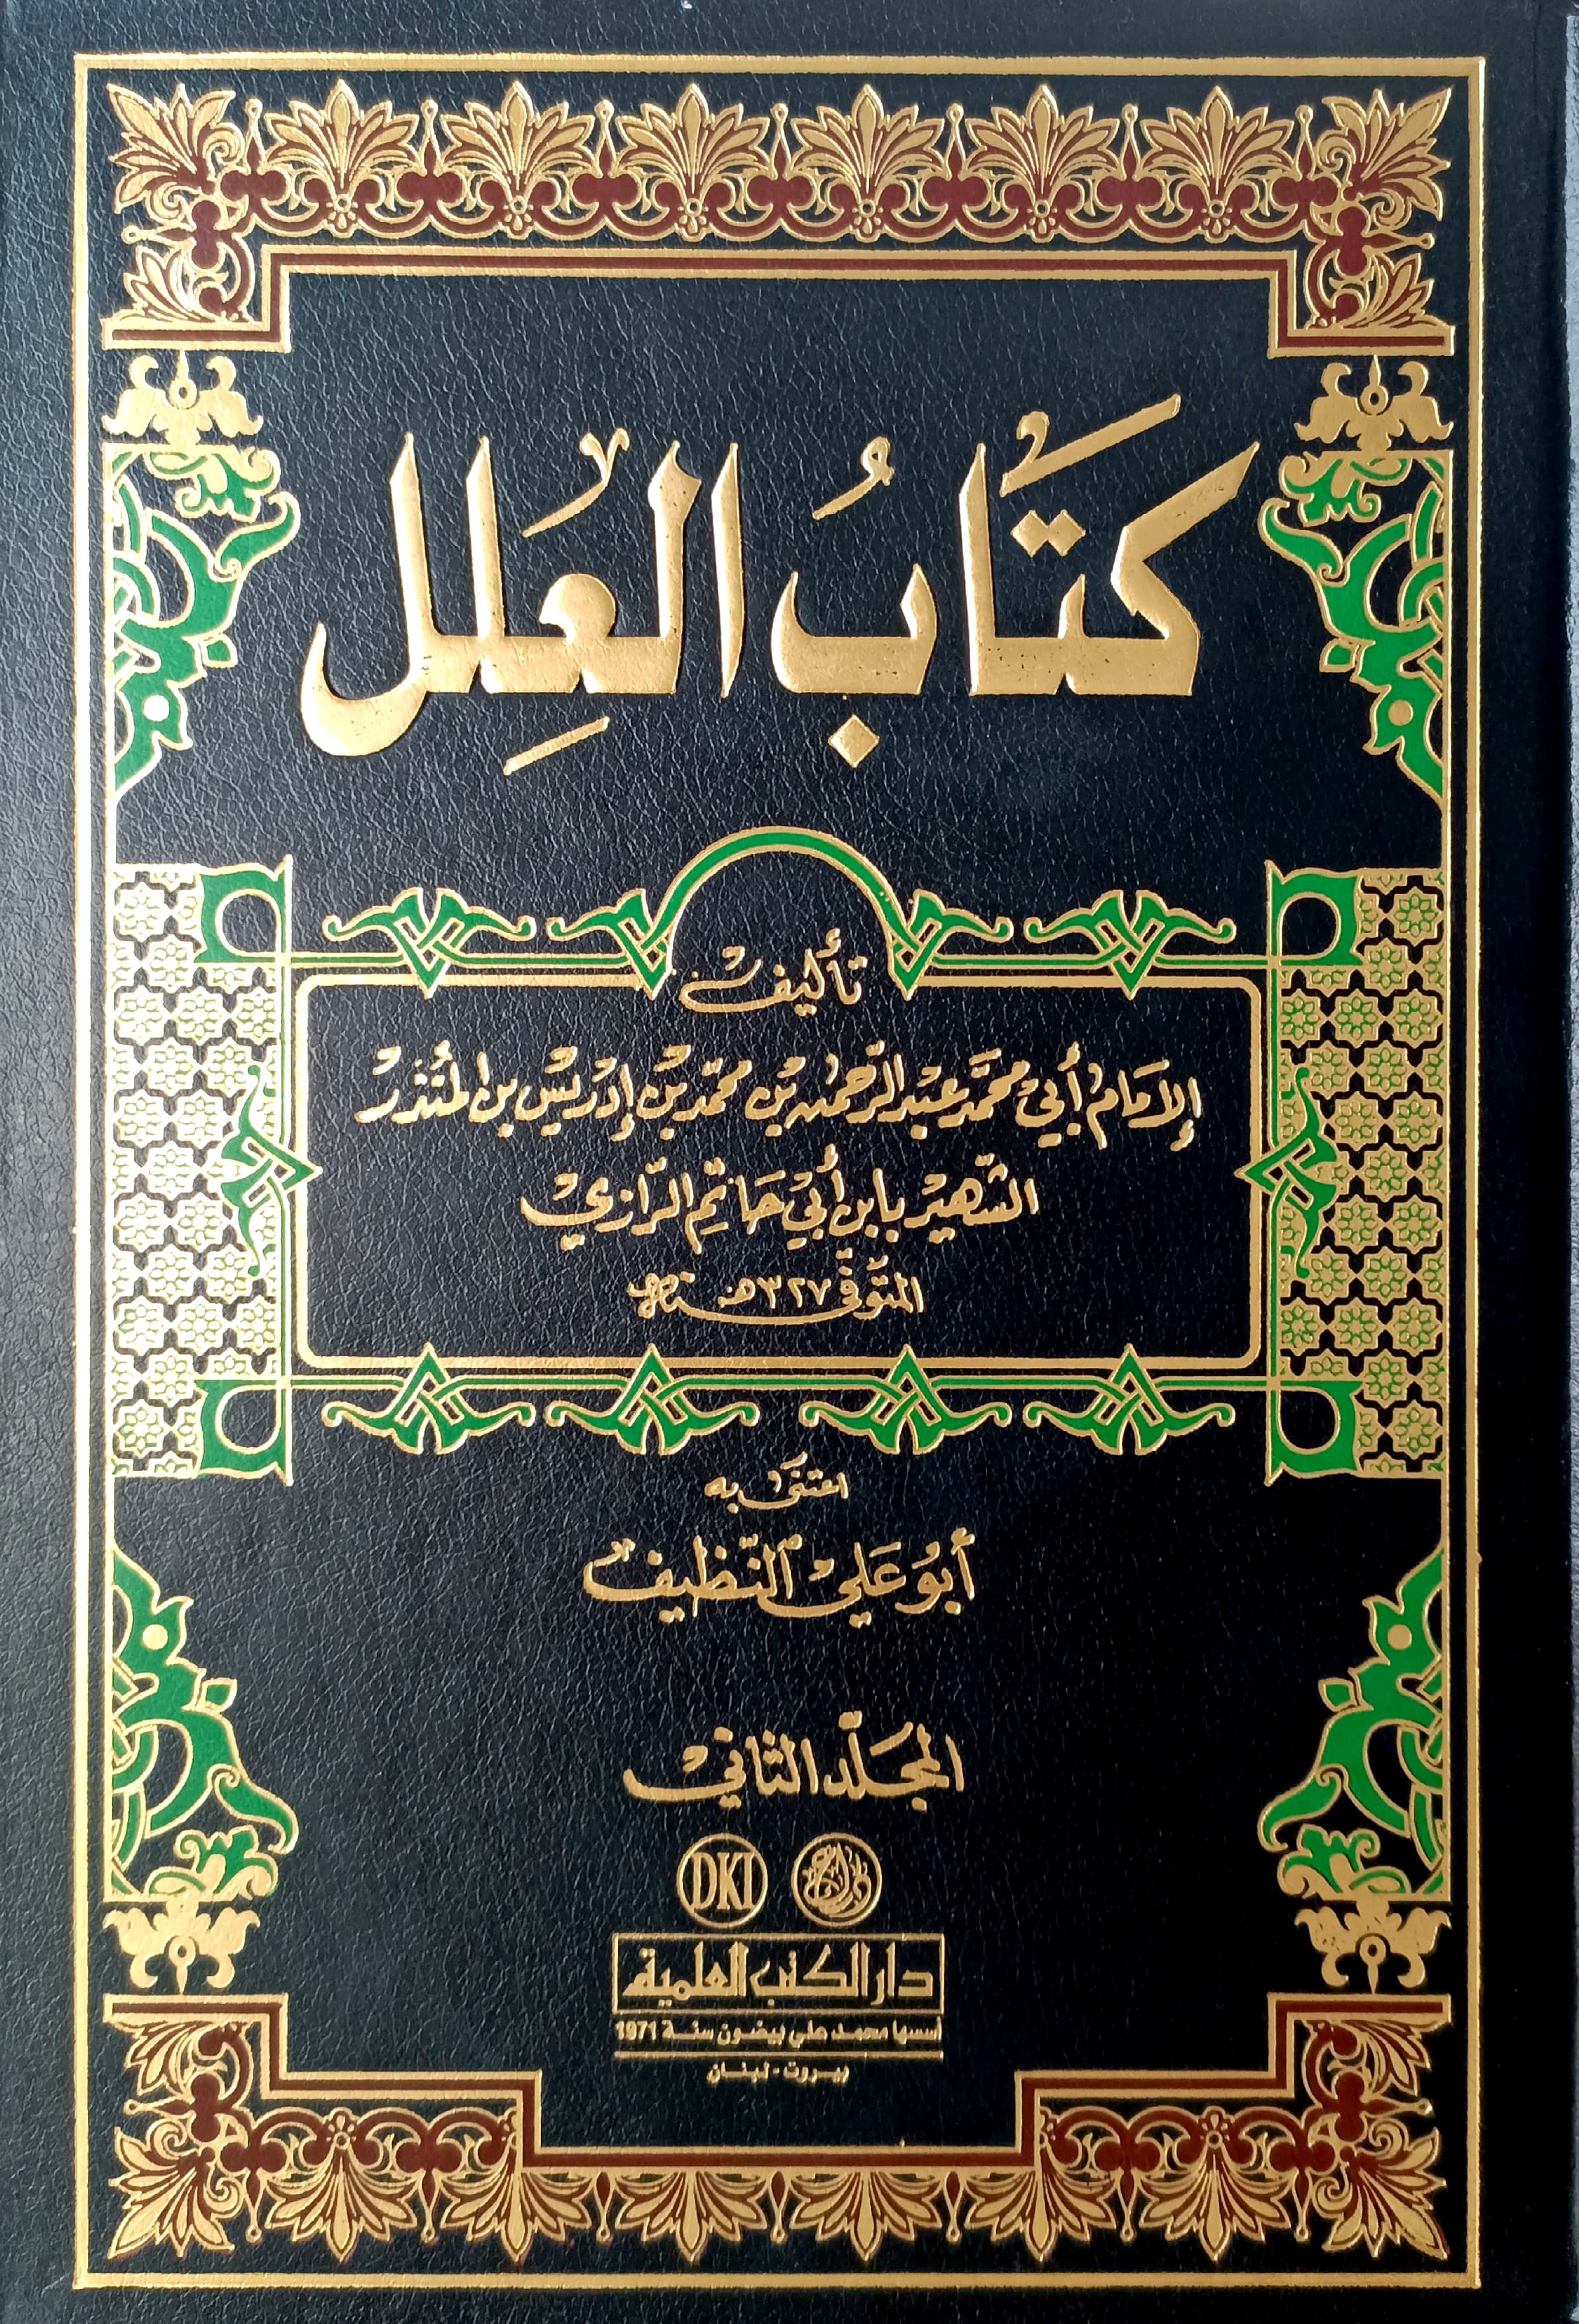 كتَابُ العِلَل
تأليف
الإمَام أبي محمَّد عبد الرّحمن بن محمّد بن إدريس بن المنذر
الشّهير بابن أبي حَاتِم الرّازي
المتَوفّى ٣٢٧هـ سنة
اعتنَى به
أبُو عَلي النّظيف
المجَلّد الثاني
DKI
دار الكتب العلمية
أسسها محمد علي بيضون سنة 1971
بيروت - لبنان